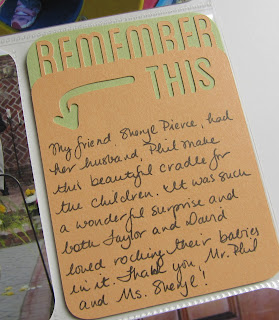 REMEMBER
THIS
My friend, Sheryl Pierce, had
her husband, Phil make
this beautiful cradle for
the children. It was such
a wonderful surprise and
both Taylor and David
loved rocking their babies
in it. Thank you, Mr. Phil
and Ms. Sheryl!